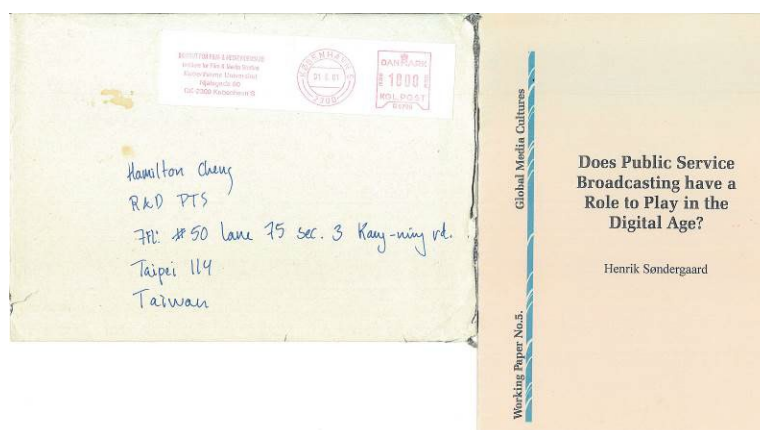 Institute for Film & Media Studies
Njalsgade 80
KØBENHAVN
2300
DANMARK
1000
KGL POST
Hamilton Cheng
R&D PTS
7Fl: #50 Lane 75 sec. 3 Kang-ning rd.
Taipei 114
Taiwan
Global Media Cultures
Working Paper No.5.
Does Public Service
Broadcasting have a
Role to Play in the
Digital Age?
Henrik Søndergaard